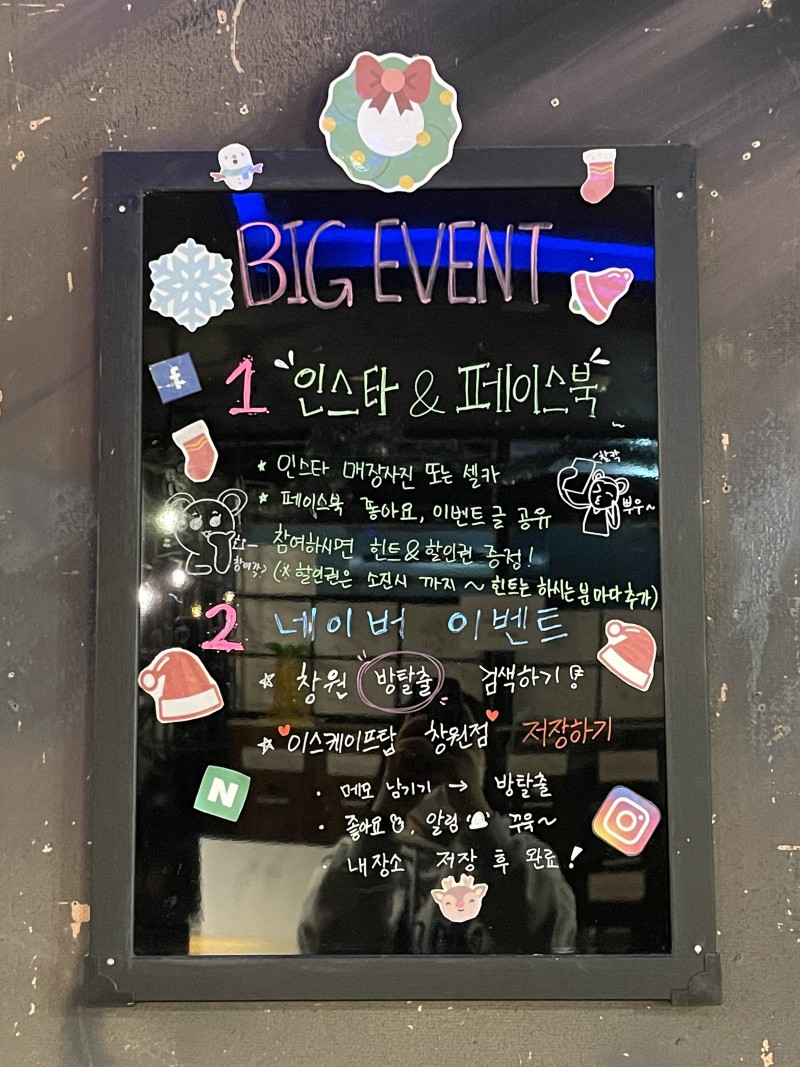 BIG EVENT
1 "인스타 & 페이스북" ~
* 인스타 매장사진 또는 셀카
찰칵
* 페이스북 좋아요, 이벤트글 공유
뿌우~
참여하시면 힌트&할인권 증정!
참여각?
(※ 할인권은 소진시 까지 ~ 힌트는 하시는분마다 추가)
2 네이버 이벤트
* 창원 방탈출 검색하기
* 이스케이프탑 창원점 저장하기
· 메모 남기기 → 방탈출
· 좋아요, 알림 꾸욱~
· 내장소 저장 후 완료!
N